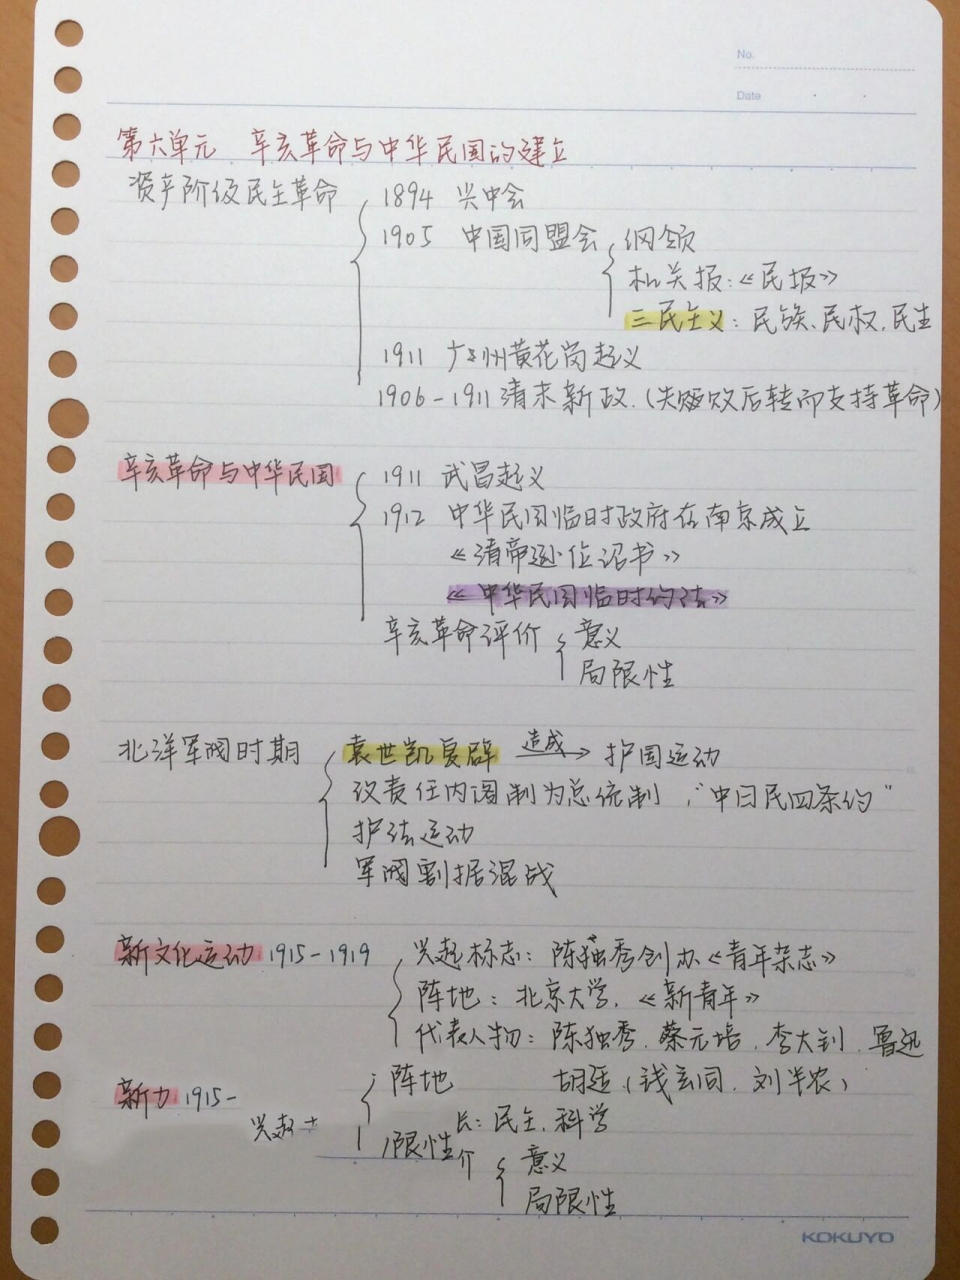 No.
Date
第六单元 辛亥革命与中华民国的建立
资产阶级民主革命 1894 兴中会
1905 中国同盟会 纲领
机关报:《民报》
三民主义: 民族、民权、民生
1911 广州黄花岗起义
1906-1911 清末新政.(失败后转而支持革命)
辛亥革命与中华民国 1911 武昌起义
1912 中华民国临时政府在南京成立
《清帝逊位诏书》
《中华民国临时约法》
辛亥革命评价 意义
局限性
北洋军阀时期 袁世凯复辟 造成→ 护国运动
改责任内阁制为总统制,"中日民四条约"
护法运动
军阀割据混战
新文化运动 1915-1919 兴起标志: 陈独秀创办《青年杂志》
阵地: 北京大学,《新青年》
代表人物: 陈独秀、蔡元培、李大钊、鲁迅
胡适(钱玄同、刘半农)
新 1915- 阵地
兴起
: 民主、科学
限性
介 意义
局限性
KOKUYO